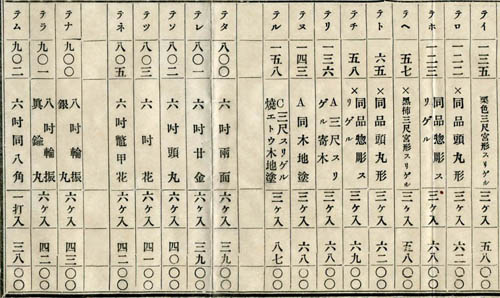 テイ 一三五 栗色三尺宮形スリゲル 三ケ入 五八〇〇
テロ 一二二 ×同品頭丸形 三ケ入 六二〇〇
テホ 一二三 ×同品惣彫スリゲル 三ケ入 六八〇〇
テヘ 五七 ×黒柿三尺宮形スリゲル 三ケ入 五八〇〇
テト 六五 ×同品頭丸形 三ケ入 六二〇〇
テチ 五八 ×同品惣彫スリゲル 三ケ入 六九〇〇
テリ 一三六 A三尺スリゲル寄木 三ケ入 六八〇〇
テヌ 一四三 A同木地塗 三ケ入 六八〇〇
テル 一五八 C三尺スリゲル燒エトウ木地塗 三ケ入 八七〇〇
テタ 八〇〇 六吋兩面 六ケ入 三九〇〇
テレ 八〇一 六吋廿金 六ケ入 三九〇〇
テソ 八〇二 六吋頭丸 六ケ入 四〇〇〇
テツ 八〇三 六吋花 六ケ入 四一〇〇
テネ 八〇五 六吋鼈甲花 六ケ入 四二〇〇
テナ 九〇〇 八吋輪振銀丸 六ケ入 四三〇〇
テラ 九〇一 八吋輪振眞鍮丸 六ケ入 四二〇〇
テム 九〇二 六吋同八角 一打入 三八〇〇